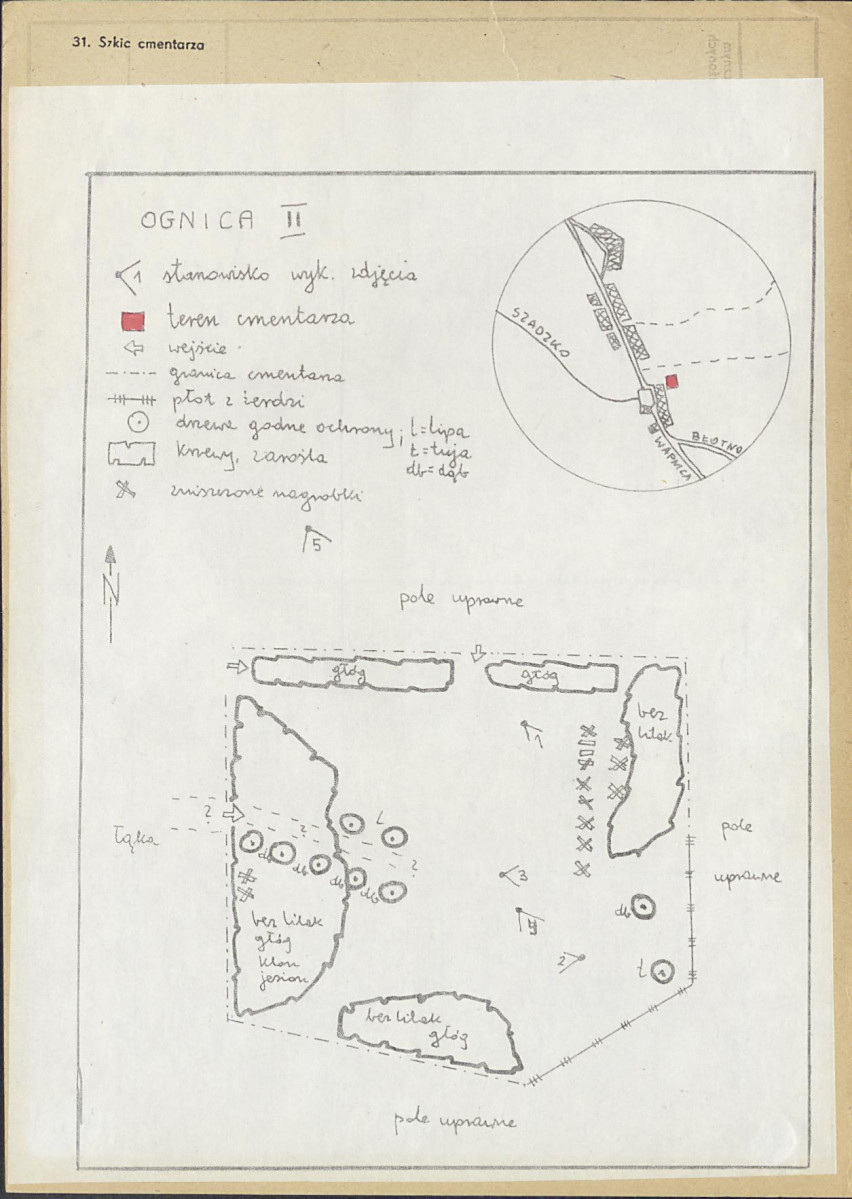 31. Szkic cmentarza
OGNICA II
1 stanowisko wyk. zdjęcia
teren cmentarza
wejście
granica cmentarza
płot z żerdzi
drzewa godne ochrony; l=lipa
t=tuja
db=dąb
krzewy, zarośla
zniszczone nagrobki
SZADZKO
BŁOTNO
WAPNICA
5
N
pole uprawne
głóg
głóg
bez
lilak
1
?
?
l
?
łąka
db
db
db
db
3
4
2
pole
uprawne
db
t
bez lilak
głóg
klon
jesion
bez lilak
głóg
pole uprawne